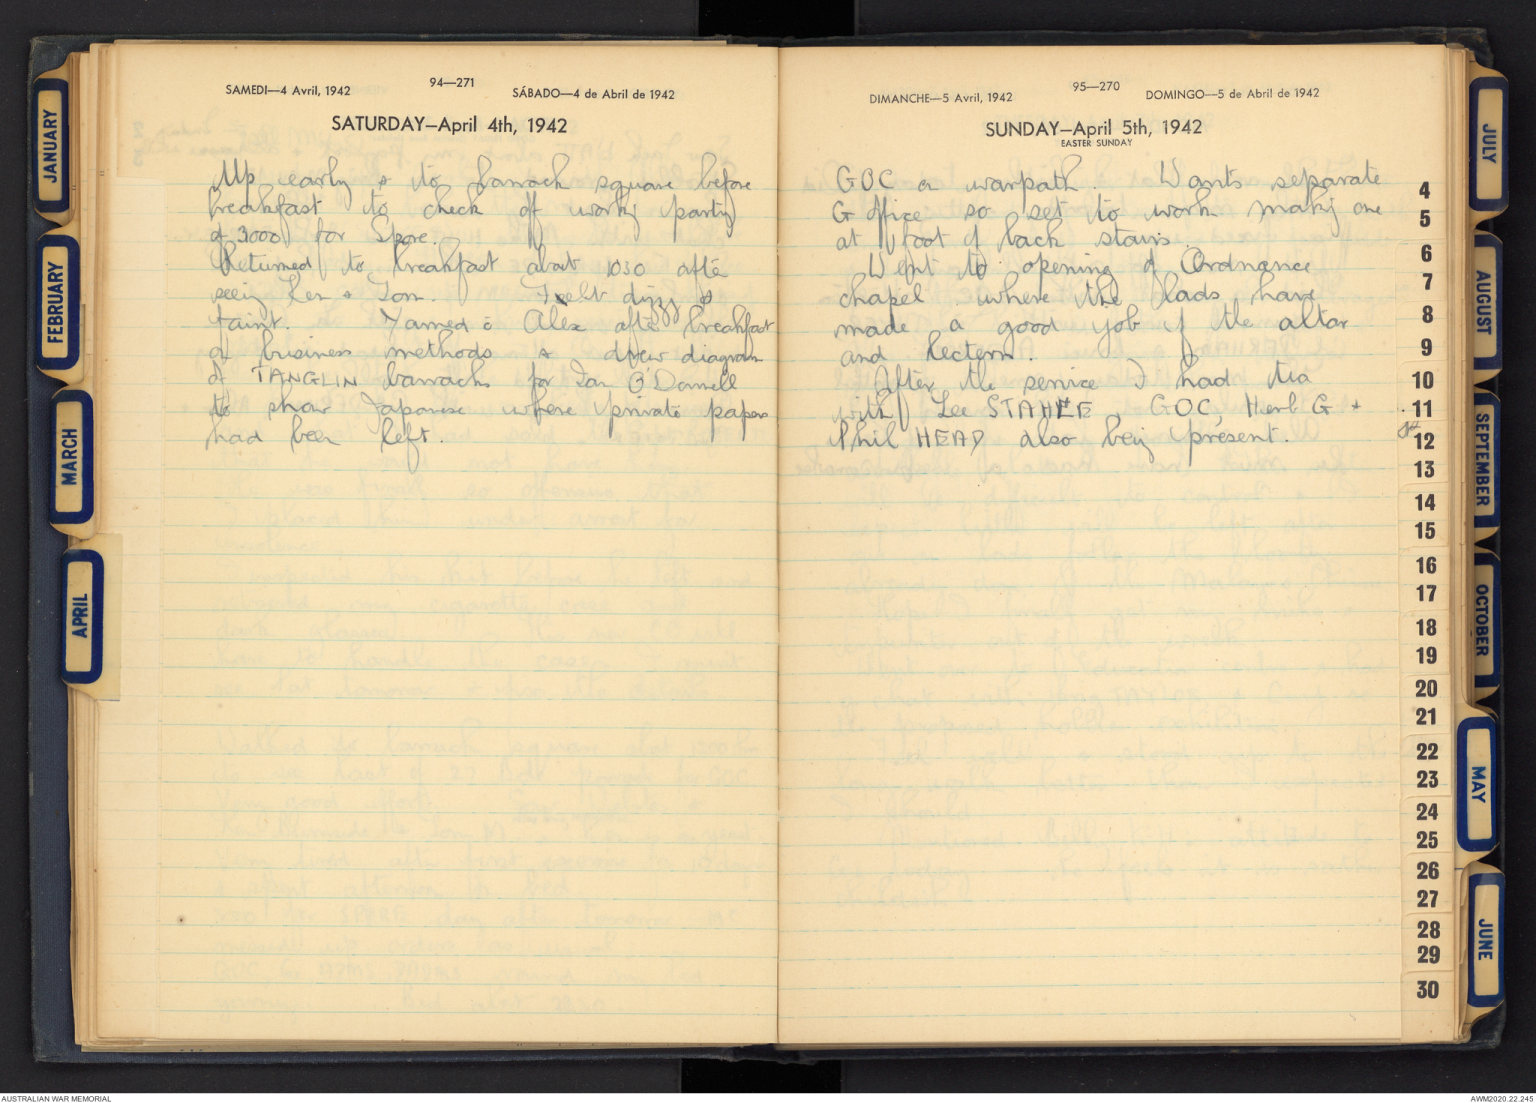 94—271
SAMEDI—4 Avril, 1942
SÁBADO—4 de Abril de 1942
SATURDAY—April 4th, 1942
Up early & to barrack square before
breakfast to check off workg party
of 3000 for Spore.
Returned to breakfast about 1030 after
seeing Ken & Tom. Felt dizzy &
faint. Yarned c Alex after breakfast
of business methods & drew diagram
of TANGLIN barracks for Ian O'Donnell
to show Japanese where private papers
had been left.
95—270
DIMANCHE—5 Avril, 1942
DOMINGO—5 de Abril de 1942
SUNDAY—April 5th, 1942
EASTER SUNDAY
GOC on warpath. Wants separate
G office so set to work makg one
at foot of back stairs.
Went to opening of Ordnance
chapel where the lads have
made a good job of the altar
and lectern.
After the service I had tea
with Lee STAHLE GOC, Herb G +
Phil HEAD also being present.
JANUARY
FEBRUARY
MARCH
APRIL
JULY
AUGUST
SEPTEMBER
OCTOBER
MAY
JUNE
4
5
6
7
8
9
10
11
12
13
14
15
16
17
18
19
20
21
22
23
24
25
26
27
28
29
30
AUSTRALIAN WAR MEMORIAL
AWM2020.22.245